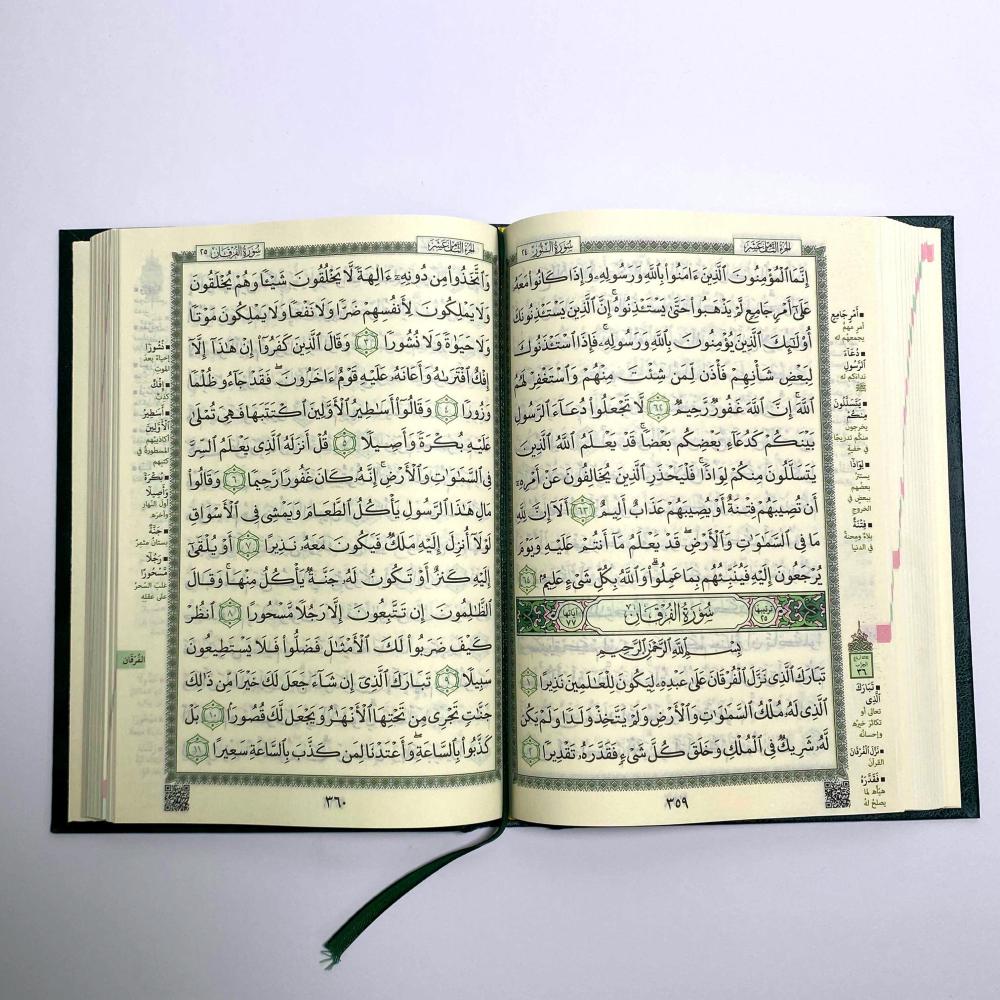 الجزء الثامن عشر
سورة النور ٢٤
إِنَّمَا ٱلْمُؤْمِنُونَ ٱلَّذِينَ ءَامَنُوا۟ بِٱللَّهِ وَرَسُولِهِۦ وَإِذَا كَانُوا۟ مَعَهُۥ
عَلَىٰٓ أَمْرٍ جَامِعٍ لَّمْ يَذْهَبُوا۟ حَتَّىٰ يَسْتَـْٔذِنُوهُ إِنَّ ٱلَّذِينَ يَسْتَـْٔذِنُونَكَ
أُو۟لَٰٓئِكَ ٱلَّذِينَ يُؤْمِنُونَ بِٱللَّهِ وَرَسُولِهِۦ فَإِذَا ٱسْتَـْٔذَنُوكَ
لِبَعْضِ شَأْنِهِمْ فَأْذَن لِّمَن شِئْتَ مِنْهُمْ وَٱسْتَغْفِرْ لَهُمُ
ٱللَّهَ إِنَّ ٱللَّهَ غَفُورٌ رَّحِيمٌ ٦٢ لَّا تَجْعَلُوا۟ دُعَآءَ ٱلرَّسُولِ
بَيْنَكُمْ كَدُعَآءِ بَعْضِكُم بَعْضًا قَدْ يَعْلَمُ ٱللَّهُ ٱلَّذِينَ
يَتَسَلَّلُونَ مِنكُمْ لِوَاذًا فَلْيَحْذَرِ ٱلَّذِينَ يُخَالِفُونَ عَنْ أَمْرِهِۦٓ
أَن تُصِيبَهُمْ فِتْنَةٌ أَوْ يُصِيبَهُمْ عَذَابٌ أَلِيمٌ ٦٣ أَلَآ إِنَّ لِلَّهِ
مَا فِى ٱلسَّمَٰوَٰتِ وَٱلْأَرْضِ قَدْ يَعْلَمُ مَآ أَنتُمْ عَلَيْهِ وَيَوْمَ
يُرْجَعُونَ إِلَيْهِ فَيُنَبِّئُهُم بِمَا عَمِلُوا۟ وَٱللَّهُ بِكُلِّ شَىْءٍ عَلِيمٌ ٦٤
ترتيبها ٢٥ سُورَةُ الفُرْقَانِ آياتها ٧٧
بِسْمِ ٱللَّهِ ٱلرَّحْمَٰنِ ٱلرَّحِيمِ
تَبَارَكَ ٱلَّذِى نَزَّلَ ٱلْفُرْقَانَ عَلَىٰ عَبْدِهِۦ لِيَكُونَ لِلْعَٰلَمِينَ نَذِيرًا ١
ٱلَّذِى لَهُۥ مُلْكُ ٱلسَّمَٰوَٰتِ وَٱلْأَرْضِ وَلَمْ يَتَّخِذْ وَلَدًا وَلَمْ يَكُن
لَّهُۥ شَرِيكٌ فِى ٱلْمُلْكِ وَخَلَقَ كُلَّ شَىْءٍ فَقَدَّرَهُۥ تَقْدِيرًا ٢
٣٥٩
أَمْرٍ جَامِعٍ
أمر مهم
يجمعهم له
دُعَآءَ
ٱلرَّسُولِ
نداءكم له
ﷺ
يَتَسَلَّلُونَ
مِنكُمْ
يخرجون
منكم تدريجًا
في خفية
لِوَاذًا
يستتر
بعضهم
ببعض في
الخروج
فِتْنَةٌ
بلاء ومحنة
في الدنيا
الحزب
٣٦
تَبَارَكَ
ٱلَّذِى
تعالى أو
تكاثر خيره
وإحسانه
نَزَّلَ ٱلْفُرْقَانَ
القرآن
فَقَدَّرَهُ
هيأه لما
يصلح له
الجزء الثامن عشر
سورة الفرقان ٢٥
وَٱتَّخَذُوا۟ مِن دُونِهِۦٓ ءَالِهَةً لَّا يَخْلُقُونَ شَيْـًٔا وَهُمْ يُخْلَقُونَ
وَلَا يَمْلِكُونَ لِأَنفُسِهِمْ ضَرًّا وَلَا نَفْعًا وَلَا يَمْلِكُونَ مَوْتًا
وَلَا حَيَوٰةً وَلَا نُشُورًا ٣ وَقَالَ ٱلَّذِينَ كَفَرُوٓا۟ إِنْ هَٰذَآ إِلَّآ
إِفْكٌ ٱفْتَرَىٰهُ وَأَعَانَهُۥ عَلَيْهِ قَوْمٌ ءَاخَرُونَ فَقَدْ جَآءُو ظُلْمًا
وَزُورًا ٤ وَقَالُوٓا۟ أَسَٰطِيرُ ٱلْأَوَّلِينَ ٱكْتَتَبَهَا فَهِىَ تُمْلَىٰ
عَلَيْهِ بُكْرَةً وَأَصِيلًا ٥ قُلْ أَنزَلَهُ ٱلَّذِى يَعْلَمُ ٱلسِّرَّ
فِى ٱلسَّمَٰوَٰتِ وَٱلْأَرْضِ إِنَّهُۥ كَانَ غَفُورًا رَّحِيمًا ٦ وَقَالُوا۟
مَالِ هَٰذَا ٱلرَّسُولِ يَأْكُلُ ٱلطَّعَامَ وَيَمْشِى فِى ٱلْأَسْوَاقِ
لَوْلَآ أُنزِلَ إِلَيْهِ مَلَكٌ فَيَكُونَ مَعَهُۥ نَذِيرًا ٧ أَوْ يُلْقَىٰٓ
إِلَيْهِ كَنزٌ أَوْ تَكُونُ لَهُۥ جَنَّةٌ يَأْكُلُ مِنْهَا وَقَالَ
ٱلظَّٰلِمُونَ إِن تَتَّبِعُونَ إِلَّا رَجُلًا مَّسْحُورًا ٨ ٱنظُرْ
كَيْفَ ضَرَبُوا۟ لَكَ ٱلْأَمْثَٰلَ فَضَلُّوا۟ فَلَا يَسْتَطِيعُونَ
سَبِيلًا ٩ تَبَارَكَ ٱلَّذِىٓ إِن شَآءَ جَعَلَ لَكَ خَيْرًا مِّن ذَٰلِكَ
جَنَّٰتٍ تَجْرِى مِن تَحْتِهَا ٱلْأَنْهَٰرُ وَيَجْعَل لَّكَ قُصُورًا ١٠ بَلْ
كَذَّبُوا۟ بِٱلسَّاعَةِ وَأَعْتَدْنَا لِمَن كَذَّبَ بِٱلسَّاعَةِ سَعِيرًا ١١
٣٦٠
نُشُورًا
إحياءً بعد
الموت
إِفْكٌ
كذب
أَسَٰطِيرُ
ٱلْأَوَّلِينَ
أكاذيبهم
المسطورة في
كتبهم
بُكْرَةً
وَأَصِيلًا
أول النهار
وآخره
جَنَّةٌ
بستان مثمر
رَجُلًا
مَّسْحُورًا
غلب السحر
على عقله
الفُرْقَان